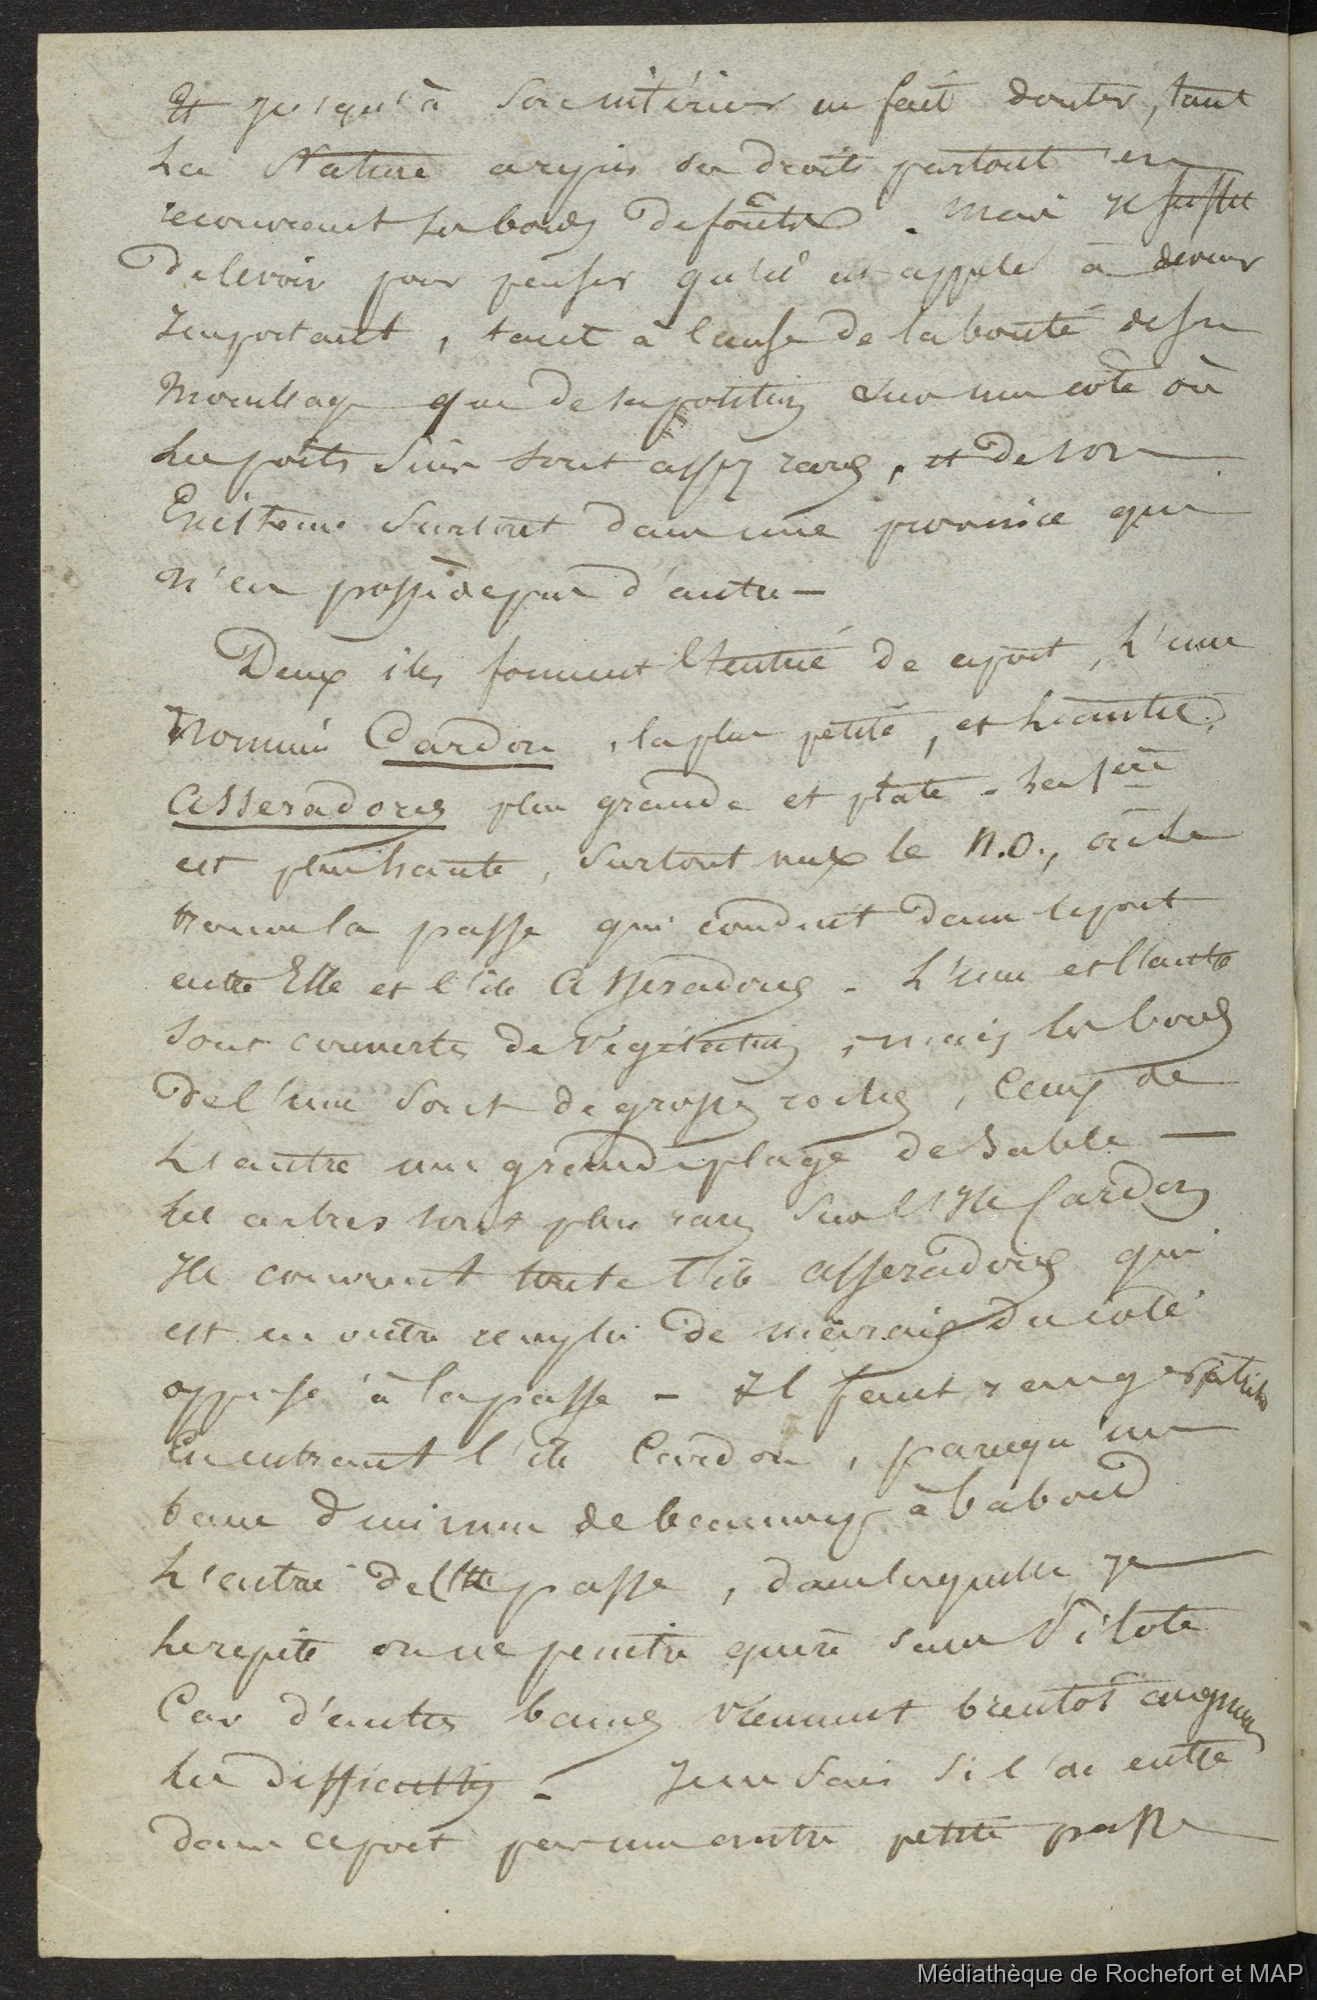 Et jusqu'à son intérieur en fait douter, tant
La Nature a repris ses droits partout en
recouvrant les bords de forêts. Mais il suffit
de le voir pour penser qu'il est appelé à devenir
Important, tant à cause de la bonté de son
Mouillage que de sa position sur une côte où
Les ports sûrs sont assez rares, et de son
Existence surtout dans une province qui
N'en possède pas d'autre —
Deux iles forment l'entrée de ce port, L'une
Nommée Cardon, la plus petite, et L'autre,
Asseradores plus grande et plate. La 1ère
est plus haute, surtout vers le N.O., où se
trouve la passe qui conduit dans le port
entre Elle et l'ile Asseradores. L'une et l'autre
sont couvertes de végétation, mais les bords
de l'une sont de grosses roches, Ceux de
L'autre une grande plage de Sable —
Les arbres sont plus rares sur l'Ile Cardon
Ils couvrent toute l'ile Asseradores qui
est en outre remplie de marais du côté
opposé à la passe — Il faut ranger
En entrant l'ile Cardon, parcequ'un
banc diminue de beaucoup à babord
L'entrée de cette passe, dans laquelle je
Le repète on ne pénètre guère sans Pilote
Car d'autres bancs viennent bientôt
Les difficultés. Je ne sais si l'on entre
dans ce port par une autre petite passe
Médiathèque de Rochefort et MAP